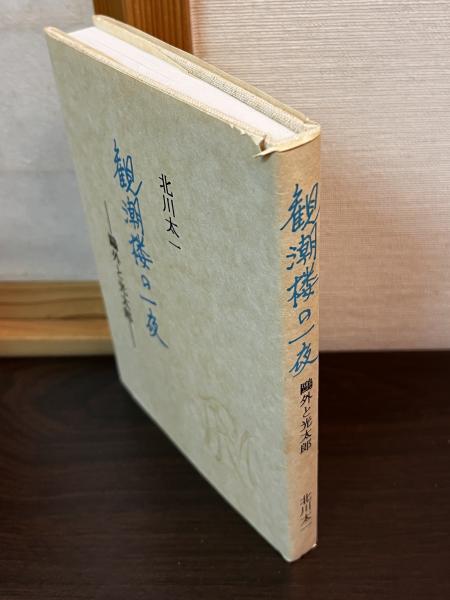 北川太一
観潮楼の一夜
―鷗外と光太郎―
観潮楼の一夜
鷗外と光太郎
北川太一